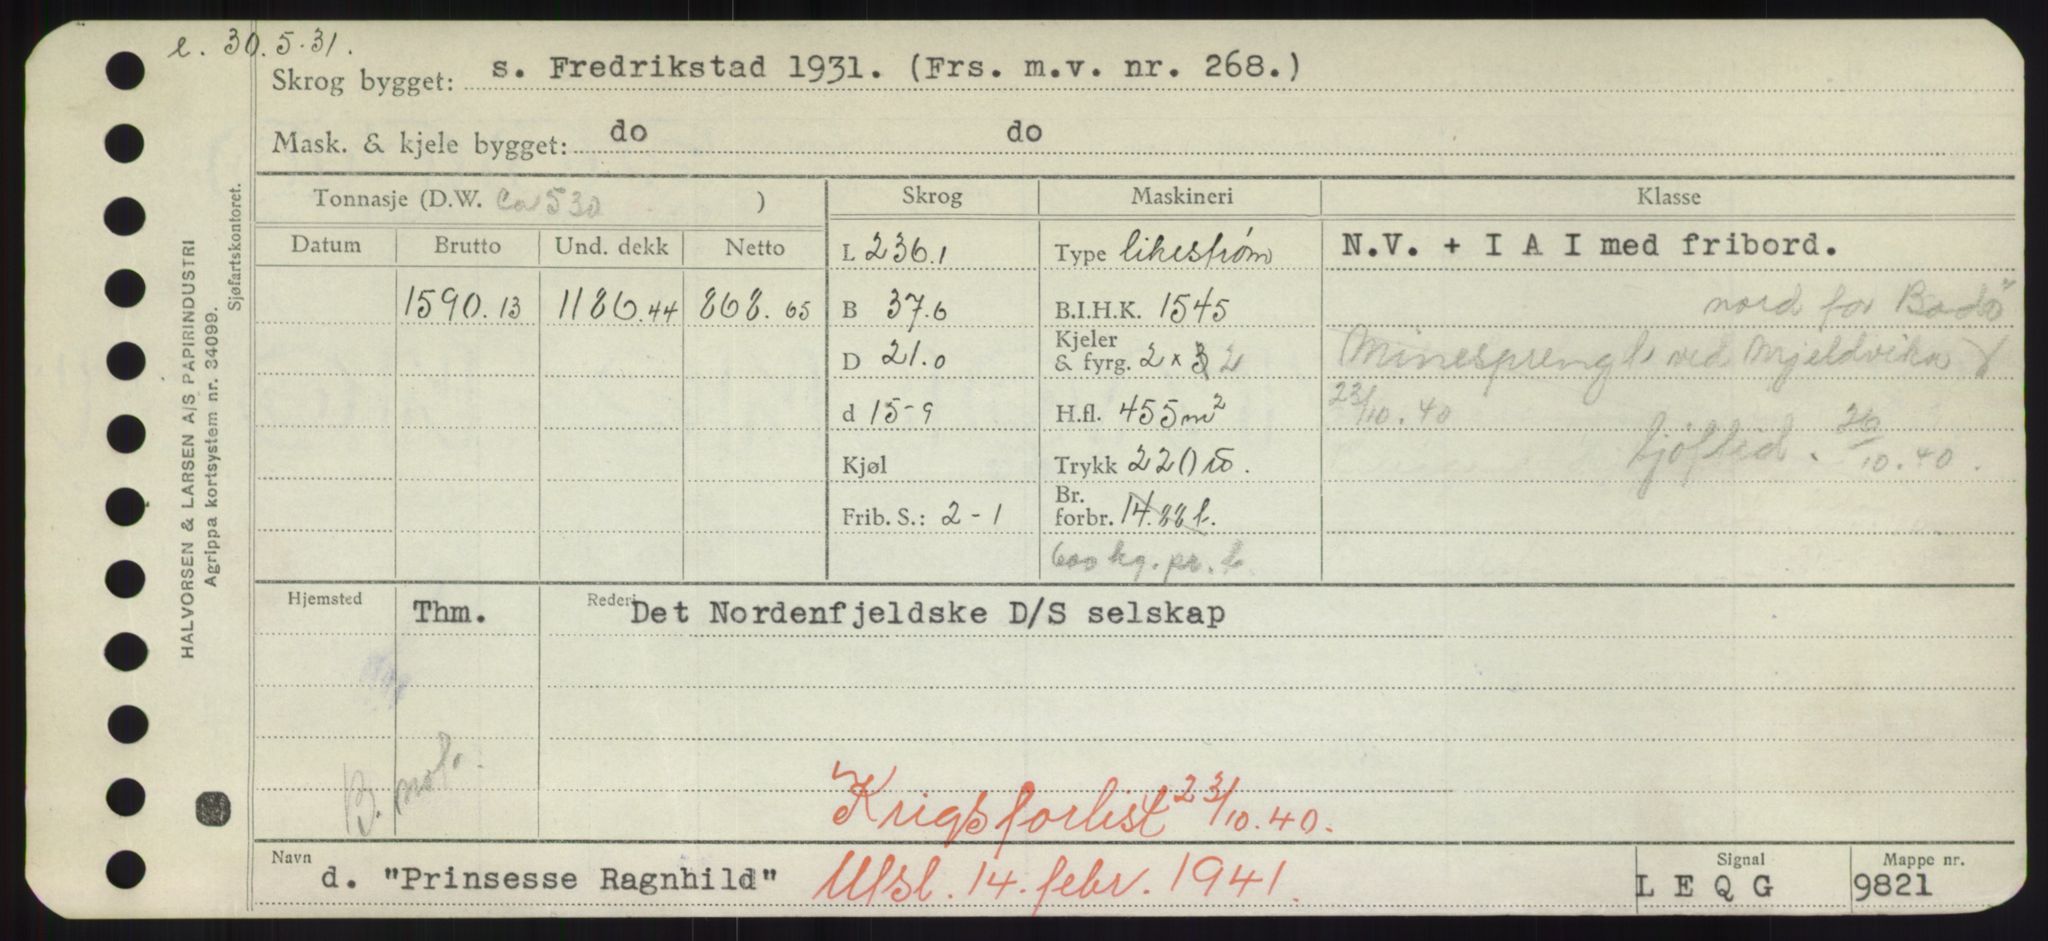 e. 30.5.31.
Skrog bygget: s. Fredrikstad 1931. (Frs. m.v. nr. 268.)
Mask. & kjele bygget: do do
Tonnasje (D.W. Ca 530 )
Datum Brutto Und. dekk Netto
1590.13 1186.44 868.65
Skrog
L 236.1
B 37.6
D 21.0
d 15-9
Kjøl
Frib. S.: 2-1
Maskineri
Type likestrøm
B.I.H.K. 1545
Kjeler
& fyrg. 2 x 3 2
H.fl. 455 m²
Trykk 220
Br.
forbr. 14.88 t.
600 kg. pr. t.
Klasse
N.V. + I A I med fribord.
nord for Bodö
Minesprengt ved Mjeldvika
23/10.40
Sjøfled. 26/10.40.
Hjemsted Thm. Rederi Det Nordenfjeldske D/S selskap
B. not.
Krigsforlist 23/10.40.
Navn d. "Prinsesse Ragnhild" Utsl. 14. febr. 1941.
Signal L E Q G
Mappe nr. 9821
HALVORSEN & LARSEN A/S PAPIRINDUSTRI
Agrippa kortsystem nr. 34099.
Sjøfartskontoret.